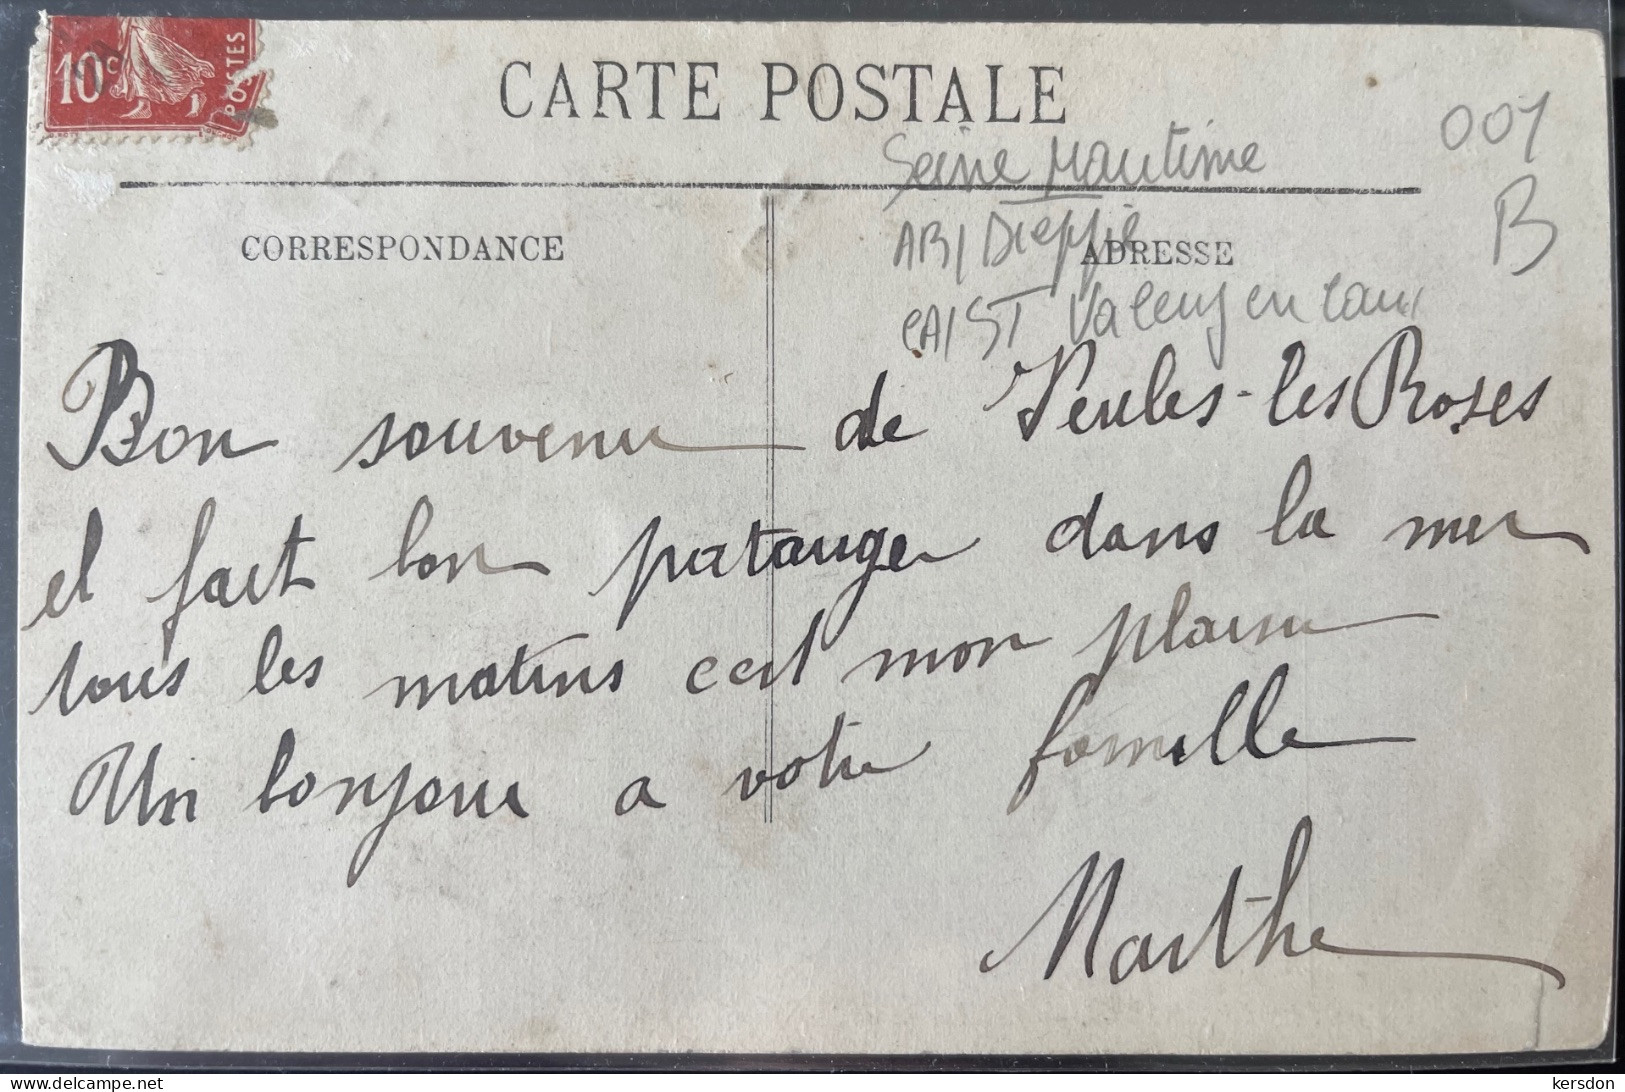 10c
POSTES
CARTE POSTALE
001
B
Seine Maritime
AR/ Dieppe
CA/ ST Valery en Caux
CORRESPONDANCE
ADRESSE
Bon souvenir de Veules-les Roses
il fait bon patauger dans la mer
tous les matins c'est mon plaisir
Un bonjour a votre famille
Marthe
kersdon